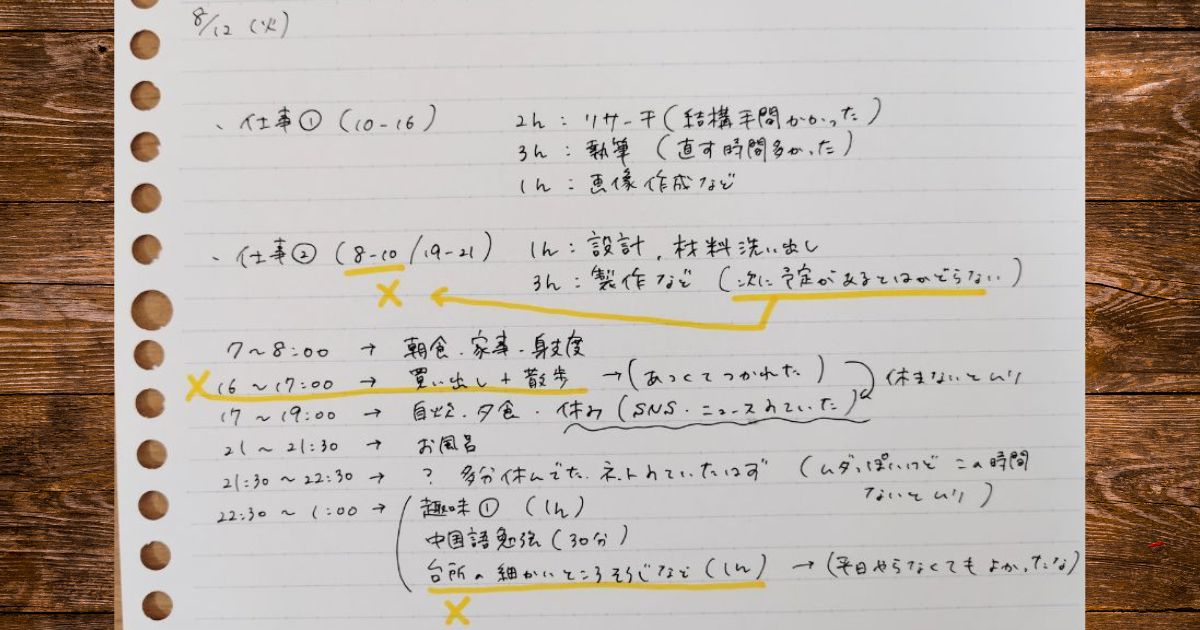 8/12 (火)
、仕事① (10-16) 2h : リサーチ (結構手間かかった)
3h : 執筆 (直す時間多かった)
1h : 画像作成など
、仕事② (8-10/19-21) 1h : 設計、材料洗い出し
3h : 製作など (次に予定があるとはかどらない)
7～8:00 → 朝食・家事・身支度
16～17:00 → 買い出し + 散歩 → (あつくてつかれた) 休まないとムリ
17～19:00 → 自炊・夕食・休み (SNS・ニュースみていた)
21～21:30 → お風呂
21:30～22:30 → ? 多分休んでた、ネットみていたはず (ムダっぽいけどこの時間
ないとムリ)
22:30～1:00 → 趣味① (1h)
中国語勉強 (30分)
台所の細かいところそうじなど (1h) → (平日やらなくてもよかったな)